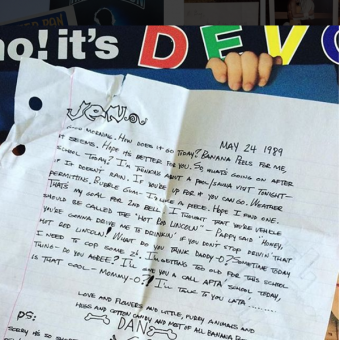 no! it's DEVO
JEN...
MAY 24 1989
GOOD MORNING. HOW DOES IT GO TODAY? BANANA PEELS FOR ME,
IT SEEMS. HOPE ITS BETTER FOR YOU. SO WHATS GOING ON AFTER
SCHOOL TODAY? I'M THINKIN ABOUT A VISIT TONIGHT-
IF IT DOESN'T RAIN. IF YOU'RE UP FOR IT YOU CAN GO. WEATHER
PERMITTING. BUBBLE GUM. I'D LIKE A PIECE. HOPE I FIND ONE.
THAT'S MY GOAL FOR 2ND BELL. I THOUGHT THAT YOU'RE VEHICLE
SHOULD BE CALLED THE "HOT ROD LINCOLN" - PAPPY SAID "HONEY,
YOU'RE GONNA DRIVE ME TO DRINKIN' IF YOU DON'T STOP DRIVIN' THAT
HOT ROD LINCOLN! WHAT DO YOU THINK DADDY-O? SOMETIME TODAY
I NEED TO COP SOME Z'S. I'M GETTING TOO OLD FOR THIS SCHOOL
THING- DO YOU AGREE? I'LL GIVE YOU A CALL AFTA SCHOOL TODAY,
IS THAT COOL- MOMMY-O? I'LL TALK TO YOU LATA'......
LOVE AND FLOWERS AND LITTLE, FURRY ANIMALS AND
HUGS AND COTTON CANDY AND MOST OF ALL BANANA
DAN
PS:
SORRY ITS SO